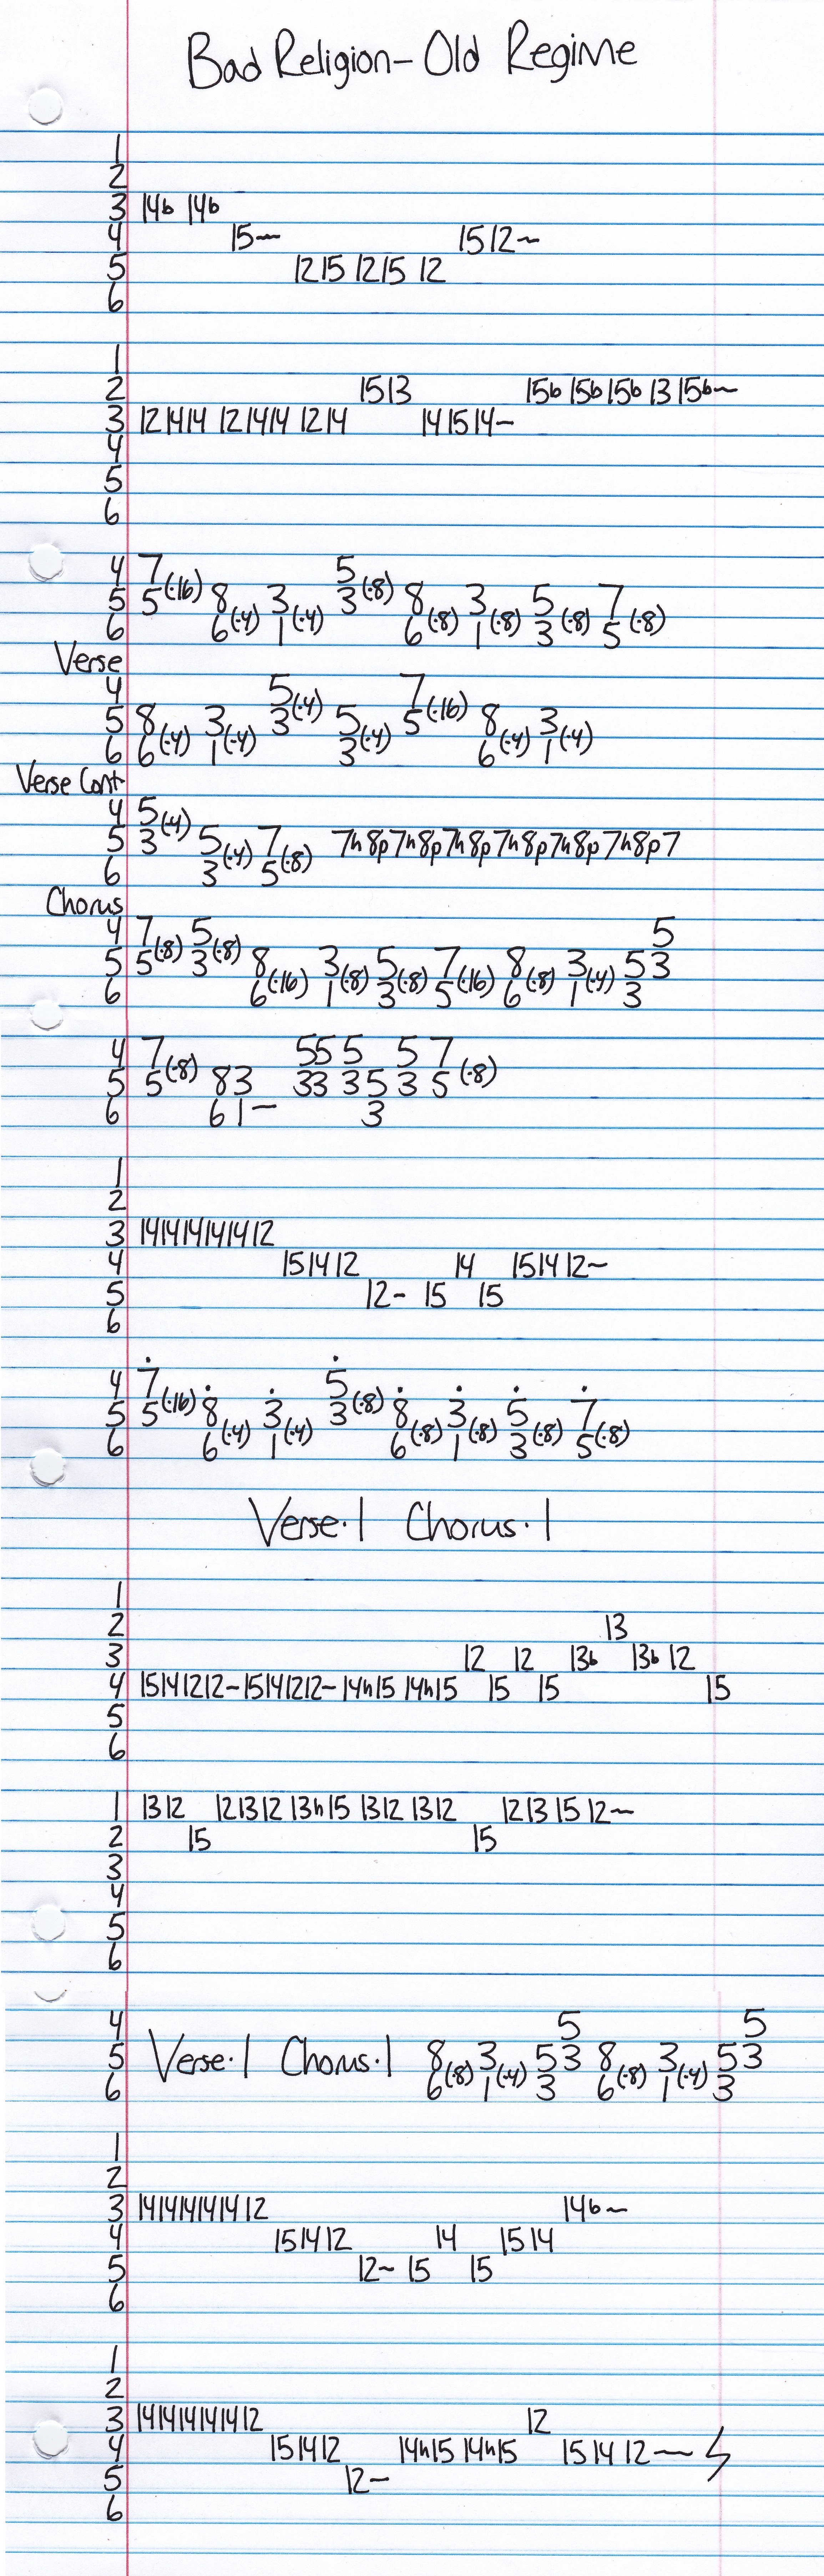 Bad Religion - Old Regime
1
2
3 14b 14b
4 15~ 15 12~
5 12 15 12 15 12
6
1
2 15 13 15b 15b 15b 13 15b~
3 12 14 14 12 14 14 12 14 14 15 14~
4
5
6
4 7 5
5 5(·16) 8 3 3(·8) 8 3 5 7
6 6(·4) 1(·4) 6(·8) 1(·8) 3(·8) 5(·8)
Verse
4 5 7
5 8 3 3(·4) 5 5(·16) 8 3
6 6(·4) 1(·4) 3(·4) 6(·4) 1(·4)
Verse Cont
4 5
5 3(·4) 5 7 7h8p7h8p7h8p7h8p7h8p7h8p7
6 3(·4) 5(·8)
Chorus
4 7 5 5
5 5(·8) 3(·8) 8 3 5 7 8 3 5 3
6 6(·16) 1(·8) 3(·8) 5(·16) 6(·8) 1(·4) 3
4 7 5 5 5 5 7
5 5(·8) 8 3 3 3 3 5 3 5(·8)
6 6 1~ 3
1
2
3 14 14 14 14 14 12
4 15 14 12 14 15 14 12~
5 12~ 15 15
6
4 7 5
5 5(·16) 8 3 3(·8) 8 3 5 7
6 6(·4) 1(·4) 6(·8) 1(·8) 3(·8) 5(·8)
Verse·1 Chorus·1
1
2 13
3 12 12 13b 13b 12
4 15 14 12 12~ 15 14 12 12~ 14h15 14h15 15 15 15
5
6
1 13 12 12 13 12 13h15 13 12 13 12 12 13 15 12~
2 15 15
3
4
5
6
4 5 5
5 Verse·1 Chorus·1 8 3 5 3 8 3 5 3
6 6(·8) 1(·4) 3 6(·8) 1(·4) 3
1
2
3 14 14 14 14 14 12 14b~
4 15 14 12 14 15 14
5 12~ 15 15
6
1
2
3 14 14 14 14 14 12 12
4 15 14 12 14h15 14h15 15 14 12~
5 12~
6